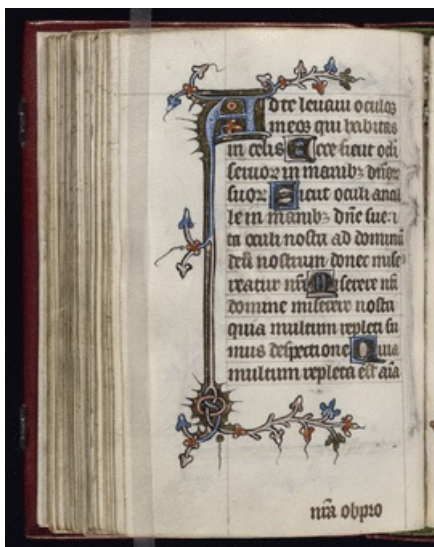 Ad te levavi oculos
meos qui habitas
in celis Ecce sicut oculi
servor in manibz dnor
suor Sicut oculi ancil
le in manibz dne sue i
ta oculi nostri ad dominu
deu nostrum donec mise
reatur nri Miserere nri
domine miserere nostri
quia multum repleti su
mus despectione Quia
multum repleta est aia
nra obpro